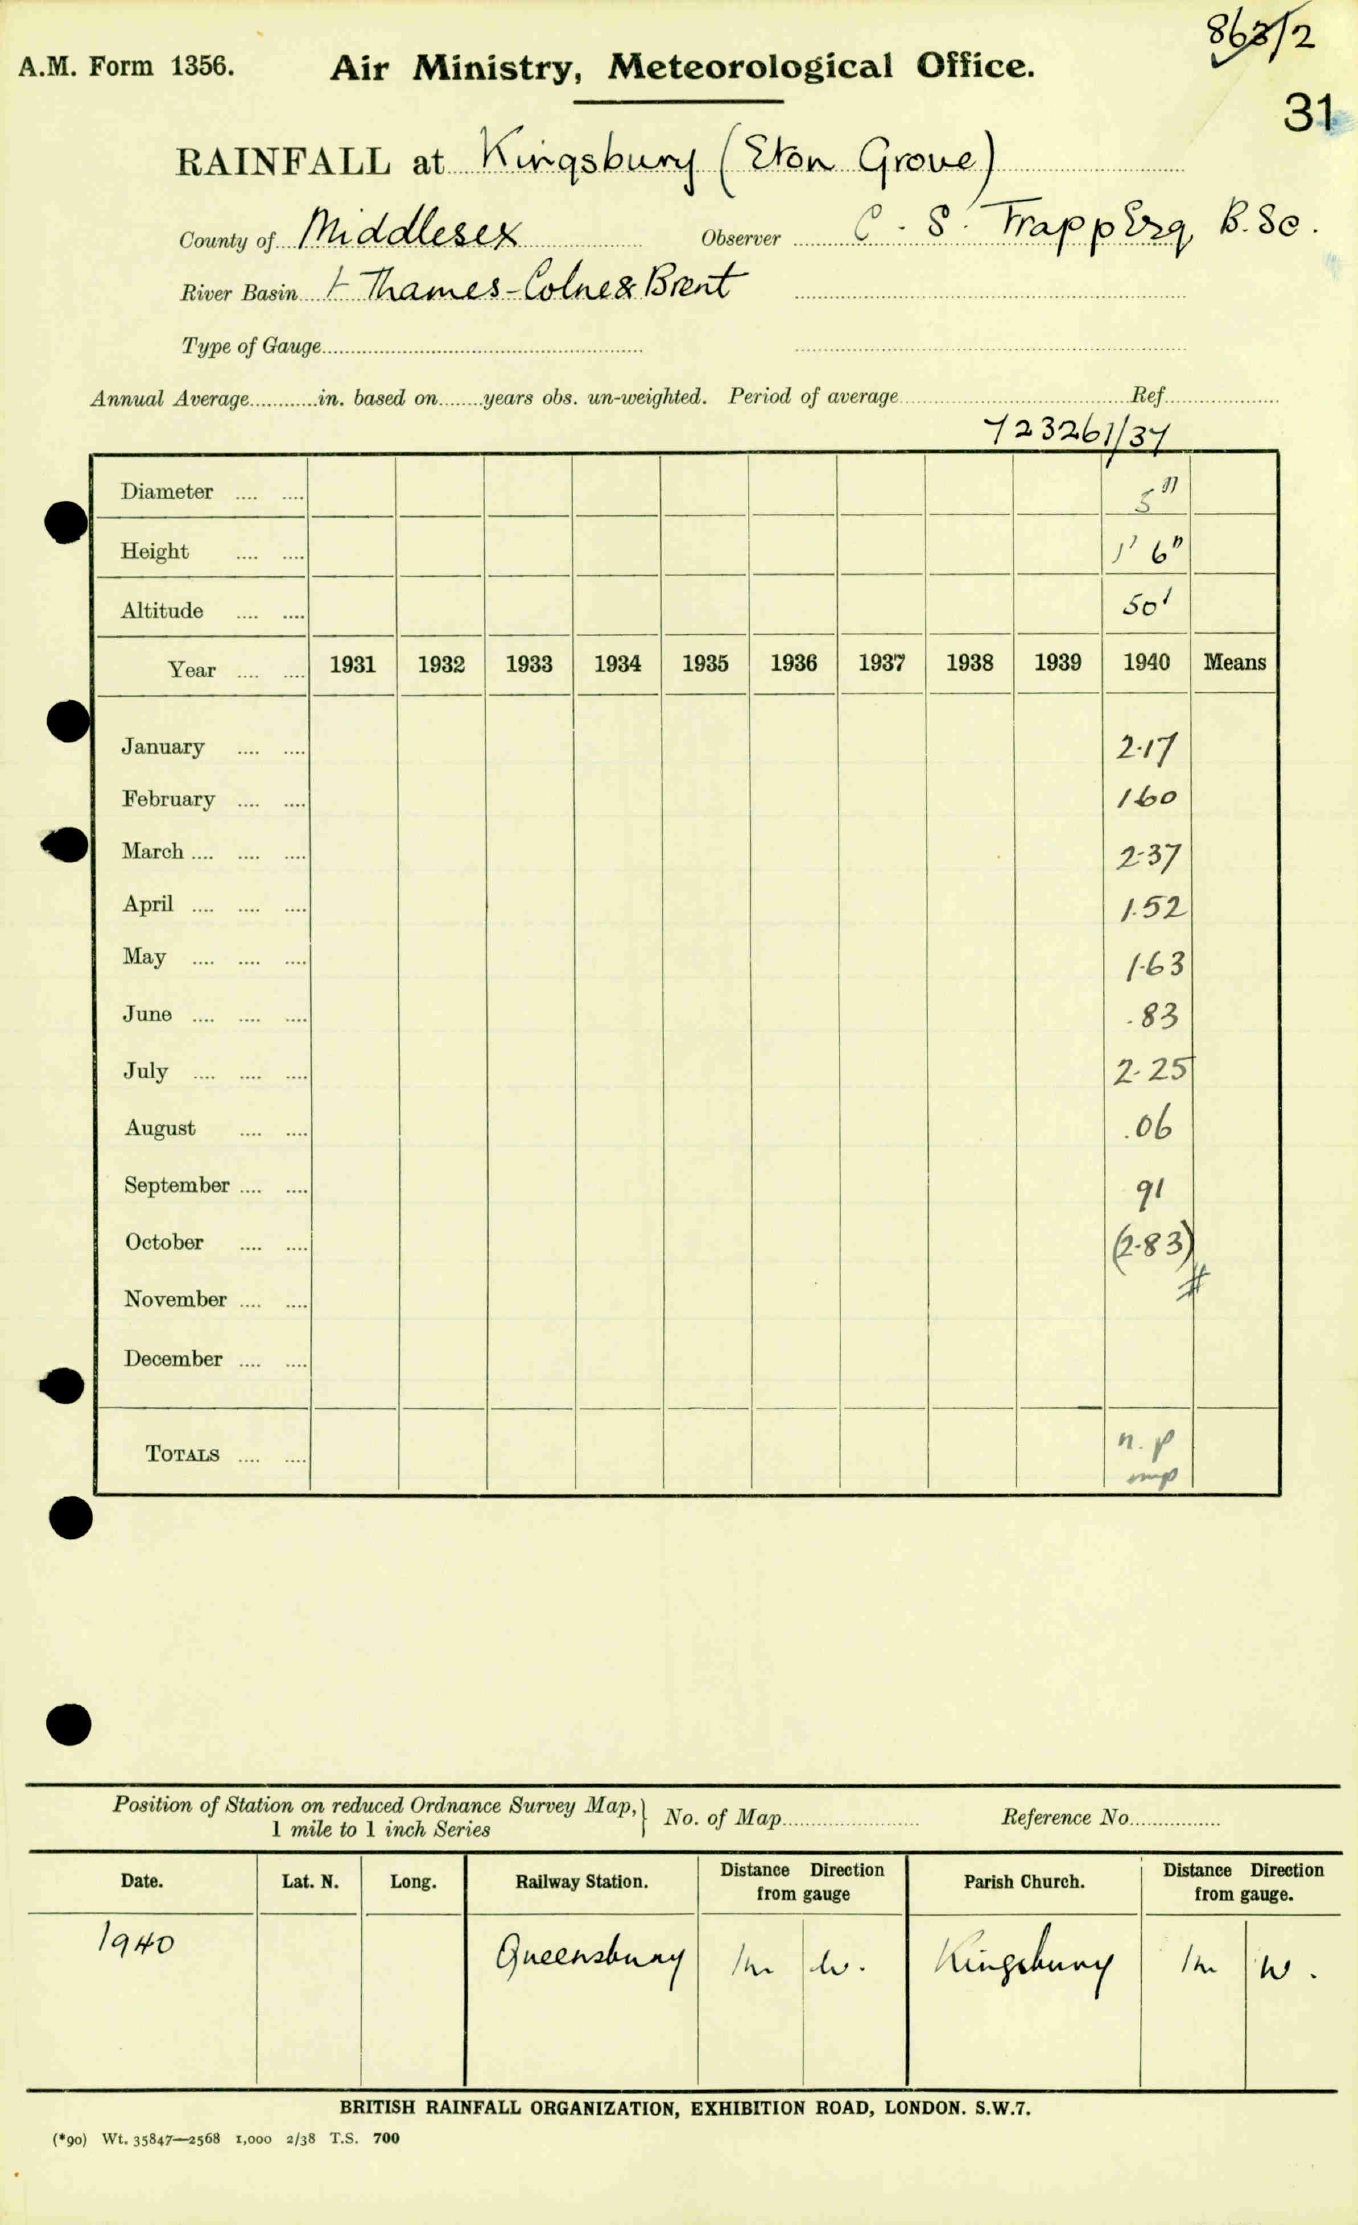 863/2
A.M. Form 1356. Air Ministry, Meteorological Office.
31
RAINFALL at Kingsbury (Eton Grove)
County of Middlesex Observer C. S. Trapp Esq, B.Sc.
River Basin Thames-Colne & Brent
Type of Gauge
Annual Average in. based on years obs. un-weighted. Period of average Ref.
723261/37
Diameter 5"
Height 1' 6"
Altitude 50'
Year 1931 1932 1933 1934 1935 1936 1937 1938 1939 1940 Means
January 2.17
February 1.60
March 2.37
April 1.52
May 1.63
June .83
July 2.25
August .06
September 91
October (2.83)
#
November
December
TOTALS n.p
Position of Station on reduced Ordnance Survey Map, } No. of Map Reference No.
1 mile to 1 inch Series
Date. Lat. N. Long. Railway Station. Distance Direction from gauge Parish Church. Distance Direction from gauge.
1940 Queensbury 1m W. Kingsbury 1m W.
BRITISH RAINFALL ORGANIZATION, EXHIBITION ROAD, LONDON. S.W.7.
(*90) Wt. 35847—2568 1,000 2/38 T.S. 700